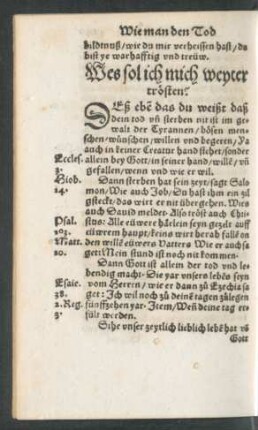 Wie man den Tod
bildtnuß/wie du mir verheissen hast/du
bist ye warhafftig vnd treüw.
Wes sol ich mich weyter
trösten?
DEß ebē das du weißt daß
dein tod vn̄ sterben nit ist im ge-
walt der Tyrannen/bösen men-
schen/wünschen/willen vnd begeren/Ya
auch in keiner Creatur hand stehet/sonder
Eccles. allein bey Gott/in seiner hand/willē/vn̄
3. gefallen/wenn vnd wie er wil.
Hiob. Dann sterben hat sein zeyt/sagt Sal-
14. mon/Wie auch Job/Du hast ihm ein zil
gsteckt/das wirt er nit übergehen. Wies
auch Dauid meldet. Also tröst auch Chri-
Psal. stus: Alle eüwere härlein seyn gezelt auff
103. eüwrem haupt/keins wirt herab fallē on
Matt. den willē eüwers Vatters Wie er auch sa
10. get: Mein stund ist noch nit kommen.
Dann Gott ist allem der tod vnd le-
bendig macht. Die yar vnsers lebēs seyn
Esaie. vom Herren/wie er dann zů Ezechia sa
38. get: Ich wil noch zů deinē tagen zůlegen
2. Reg. fünffzehen yar. Item/Weñ deine tag er-
3. fült werden.
Sihe vnser zeytlich lieblich lebē hat vn̄
Gott